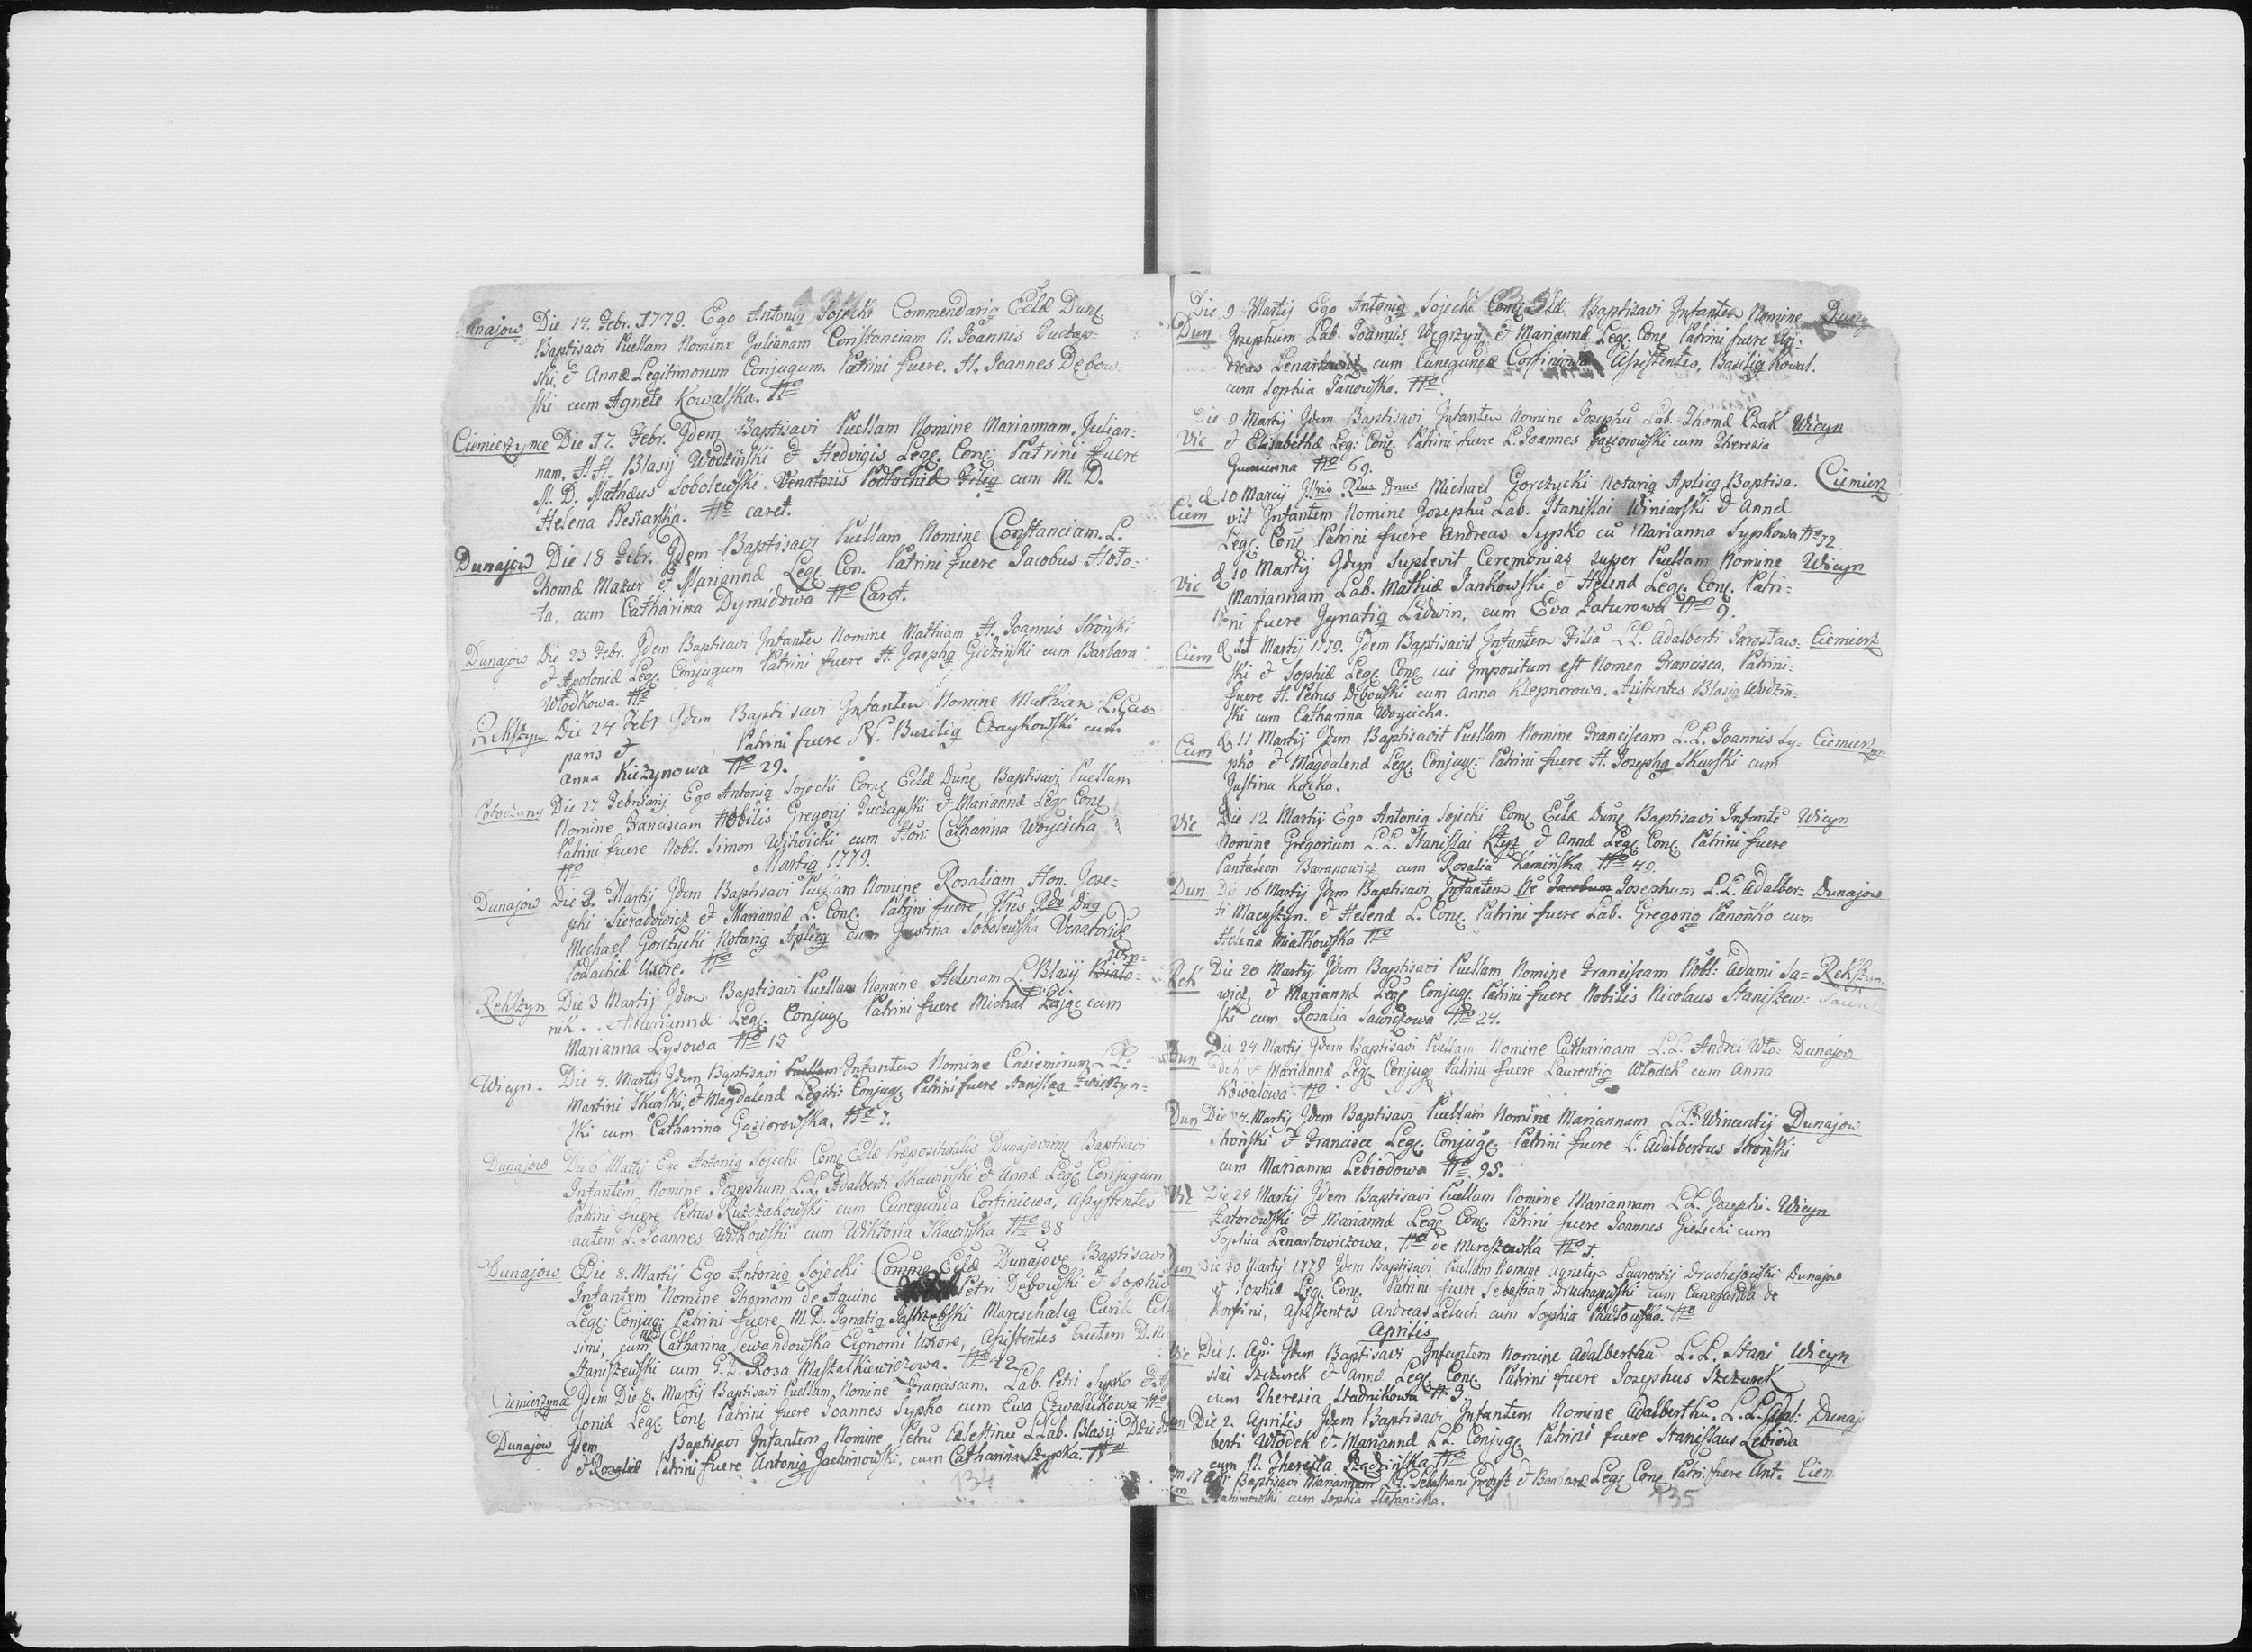 Dunajow Die 14. Febr. 1779. Ego Antoniq Sojecki Commendariq Eclæ Dunę
Baptisavi Puellam Nomine Julianam Constanciam N. Joannis Juczap=
ski, & Annæ Legitimorum Conjugum. Patrini fuere. H. Joannes Dębow=
ski cum Agnete Kowalska. No
Ciemierzynce Die 17. Febr. Idem Baptisavi Puellam Nomine Mariannam, Julian=
nam. H.H. Blasij Wodziński & Hedvigis Legę. Conę: Patrini fuere
M. D. Mathæus Sobolewski Venatoris Podlachiæ Filiq cum M. D.
Helena caret.
Dunajow Die 18 Febr. Idem Baptisavi Puellam Nomine Constanciam. L.
Thomæ Mazur & Mariannæ Legę. Con. Patrini fuere Jacobus Hoło=
ta, cum Catharina Dymidowa No Caret.
Dunajow Die 23 Febr. Idem Baptisavi Infantem Nomine Mathiam H. Joannis Stroński
& Apoloniæ Legę. Conjugum Patrini fuere H. Josephq Gidziński cum Barbara
Włodkowa. No
Rekszyn Die 24 Febr Idem Baptisavi Infantem Nomine Mathiam L. Gas=
pars & Patrini fuere N. Basiliq Czaykowski cum
Anna Kiezynowa No 29.
Potoczany Die 27 Februarij Ego Antoniq Sojecki Comę Eclæ Dunę Baptisavi Puellam
Nomine Franciscam Nobilis Gregorij Juczapski & Mariannæ Legę Conę
Patrini fuere Nobl. Simon Witwicki cum Hon: Catharina Woycicka
No Martiq 1779.
Dunajow Die 2. Martij Idem Baptisavi Puellam Nomine Rosaliam Hon. Jose=
phi Sieradowicz & Mariannæ L. Conę. Patrini fuere Rdo Dnq
Michael Gorczycki Notariq Apliq cum Justina Sobolewska Venatoriæ
Podlachiæ Uxore. No Win=
Rekszyn Die 3 Martij Idem Baptisavi Puellam Nomine Helenam L. Blasij Biało=
nik. & Mariannæ Legę. Conjugę Patrini fuere Michał Zając cum
Marianna Lysowa No 15
Wicyn. Die 4. Martij Idem Baptisavi Puellam Infantem Nomine Casiemirum L.L.
Martini Skurski, & Magdalenæ Legiti: Conjugę Patrini fuere Stanislaq
ski cum Catharina Gąsiorowska. No 7.
Dunajow Die 6 Martij Ego Antoniq Sojecki Comę Eclæ Præpositralis Dunajovienę Baptisavi
Infantem Nomine Josephum L.L. Adalberti Skawiński & Annæ Legę Conjugum
Patrini fuere Petrus Ruszczakowski cum Cunegunda Corfiniowa, Assystentes
autem L. Joannes Witkowski cum Wiktoria Skawińska No 38
Dunajow Die 8. Martij Ego Antoniq Sojecki Comme Eclæ Dunajovę Baptisavi
Infantem Nomine Thomam de Aquino Petri Dębowski & Sophiæ
Legę: Conjugę: Patrini fuere M.D. Ignatiq Jastrzębski Mareschalcq Curiæ
simi, cum Catharina Lewandowska Economi Uxore, Assistentes Autem D.
Staniszewski cum G. D. Rosa Mastalkiewiczowa. No 42
Ciemierzynce Idem Die 8. Martij Baptisavi Puellam Nomine Franciscam. Lab. Petri Sypko
loniæ Legę Conę Patrini fuere Joannes Sypko cum Ewa No
Dunajow Idem Baptisavi Infantem Nomine Petrū Celestinū L Lab. Blasij
& Rosaliæ Patrini fuere Antoniq Jachimowski, cum Catharina Szypska. No
134
Die 9 Martij Ego Antoniq Sojecki Comę Eclæ Baptisavi Infantem Nomine Dun
Dun Josephum Lab. Joannis Węgrzyn & Mariannæ Legę. Conę Patrini fuere An=
dreas Lenartowicz cum Cunegunda Corfiniowa Assistentes, Basiliq Kowal.
cum Sophia Janowska. No
Die 9 Martij Idem Baptisavi Infantem Nomine Josephū Lab. Thomæ Czak Wicyn
Vic & Elisabethæ Leg: Conę. Patrini fuere L. Joannes Gąsiorowski cum Theresia
Gumienna No 69.
d. 10 Marcij Illris Rdus Dnus Michael Gorczycki Notariq Apliq Baptisa. Ciemierz
Ciem vit Infantem Nomine Josephū Lab. Stanislai Winiarski & Annæ
Legę. Conę Patrini fuere Andreas Sypko cū Marianna Sypkowa No 72
d. 10 Martij Idem Suplevit Ceremonias super Puellam Nomine Wicyn
Vic Mariannam Lab. Mathiæ Jankowski & Helenæ Legę. Conę. Patri=
ni fuere Ignatiq Lidwin, cum Eva Zaturowa No 9.
Ciem d. 11 Martij 1779. Idem Baptisavit Infantem Filiā LL. Adalberti Jarosław= Ciemierz
ski & Sophiæ Legę Conę cui Impositum est Nomen Francisca, Patrini=
fuere H. Petrus Dębowski cum Anna Klepnerowa. Asistentes Blasiq Wodziń=
ski cum Catharina Woycicka.
Ciem d. 11 Martij Idem Baptisavit Puellam Nomine Franciscam L.L. Joannis Sy= Ciemierzyn
pko & Magdalenæ Legę. Conjugę: Patrini fuere H. Josephq Skurski cum
Justina Kucka.
Vic Die 12 Martij Ego Antoniq Sojecki Comę Eclæ Dunę Baptisavi Infantē Wicyn
Nomine Gregorium L.L. Stanislai & Annæ Legę Conę. Patrini fuere
Pantaleon Baranowicz cum Rosalia Kamińska No 40.
Dun Die 16 Martij Idem Baptisavi Infantem Ne Jacobum Josephum L.L. Adalber= Dunajow
ti Macyszyn. & Helenæ L. Conę. Patrini fuere Lab. Gregoriq Panońko cum
Helena Miałkowska No
Rek Die 20 Martij Idem Baptisavi Puellam Nomine Franciscam Nobl: Adami Sa= Rekszyn.
wicz, & Mariannæ Legę Conjugę Patrini fuere Nobilis Nicolaus Staniszew=
ski cum Rosalia Sawiczowa No 24.
Dun Die 24 Martij Idem Baptisavi Puellam Nomine Catharinam L.L. Andrei Wło= Dunajow
dek & Mariannæ Legę. Conjugę Patrini fuere Laurentiq Włodek cum Anna
Kowalowa No
Dun Die 24. Martij Idem Baptisavi Puellam Nomine Mariannam L.L. Wincentij Dunajow
Stroński & Francisce Legę. Conjugę. Patrini fuere L. Adalbertus Stroński
cum Marianna Lebiodowa No 95.
Vic Die 29 Martij Idem Baptisavi Puellam Nomine Mariannam L.L. Josephi. Wicyn
Zatorowski & Mariannæ Legę Conę. Patrini fuere Joannes Gielecki cum
Sophia Lenartowiczowa. No de Mereszowka No 1.
Dun Die 30 Martij 1779 Idem Baptisavi Puellam Nomine Agnetę Laurentij Druchajowski Dunajow
& Sophiæ Legę Conę. Patrini fuere Sebastian Druchajowski cum Cunegunda de
Korfini, Assistentes Andreas Leluch cum Sophia Pawłowska. No
Aprilis
Vic Die 1. Ap: Idem Baptisavi Infantem Nomine Adalberthū L.L. Stani Wicyn
slai Szczurek & Annæ Legę Conę Patrini fuere Josephus Szczurek
cum Theresia Stadnikowa N. 3.
Dun Die 2. Aprilis Idem Baptisavi Infantem Nomine Adalberthū. L.L. Adal: Dunaj
berti Włodek & Mariannæ L.L. Conjugę. Patrini fuere Stanislaus Lebioda
cum N. Theresia No
17 Baptisavi Mariannam L.L. Sebastiani & Barbaræ Legę Conę Patri. fuere Ant. Ciem
Jachimowski cum Sophia Stefanicka.
135